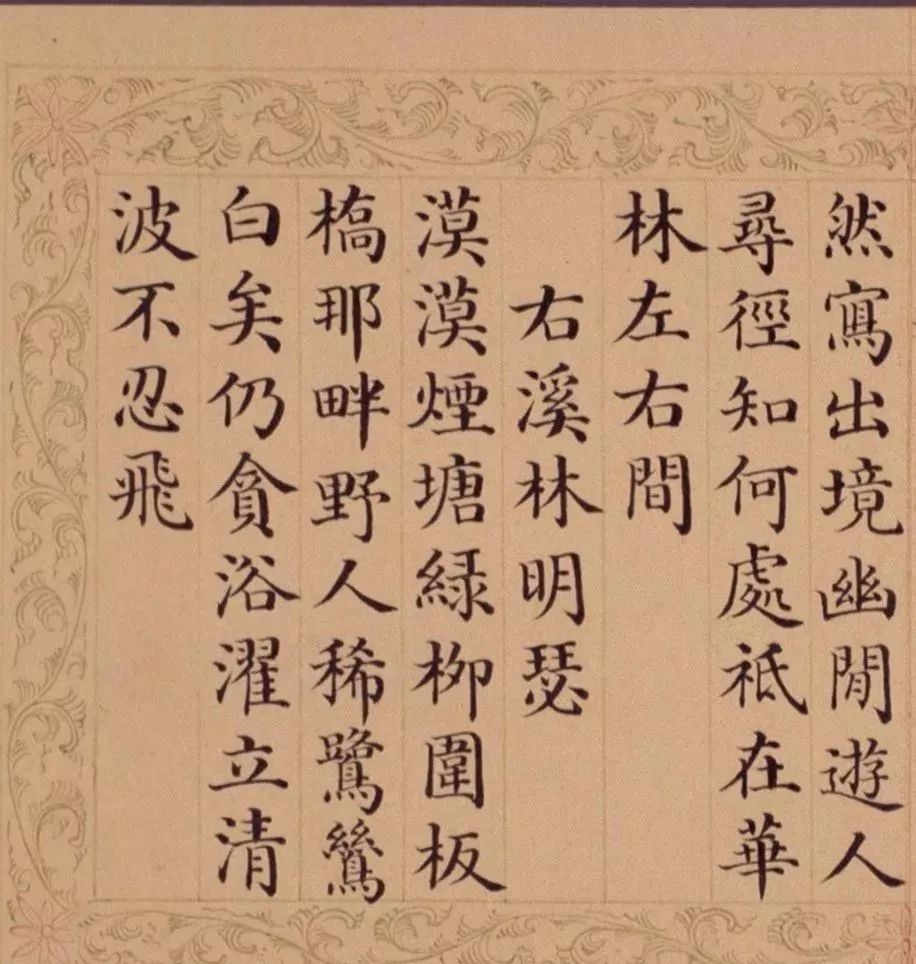 然寫出境幽閒遊人
尋徑知何處祗在華
林左右間
右溪林明瑟
漠漠煙塘綠柳圍板
橋那畔野人稀鷺鷥
白矣仍貪浴濯立清
波不忍飛